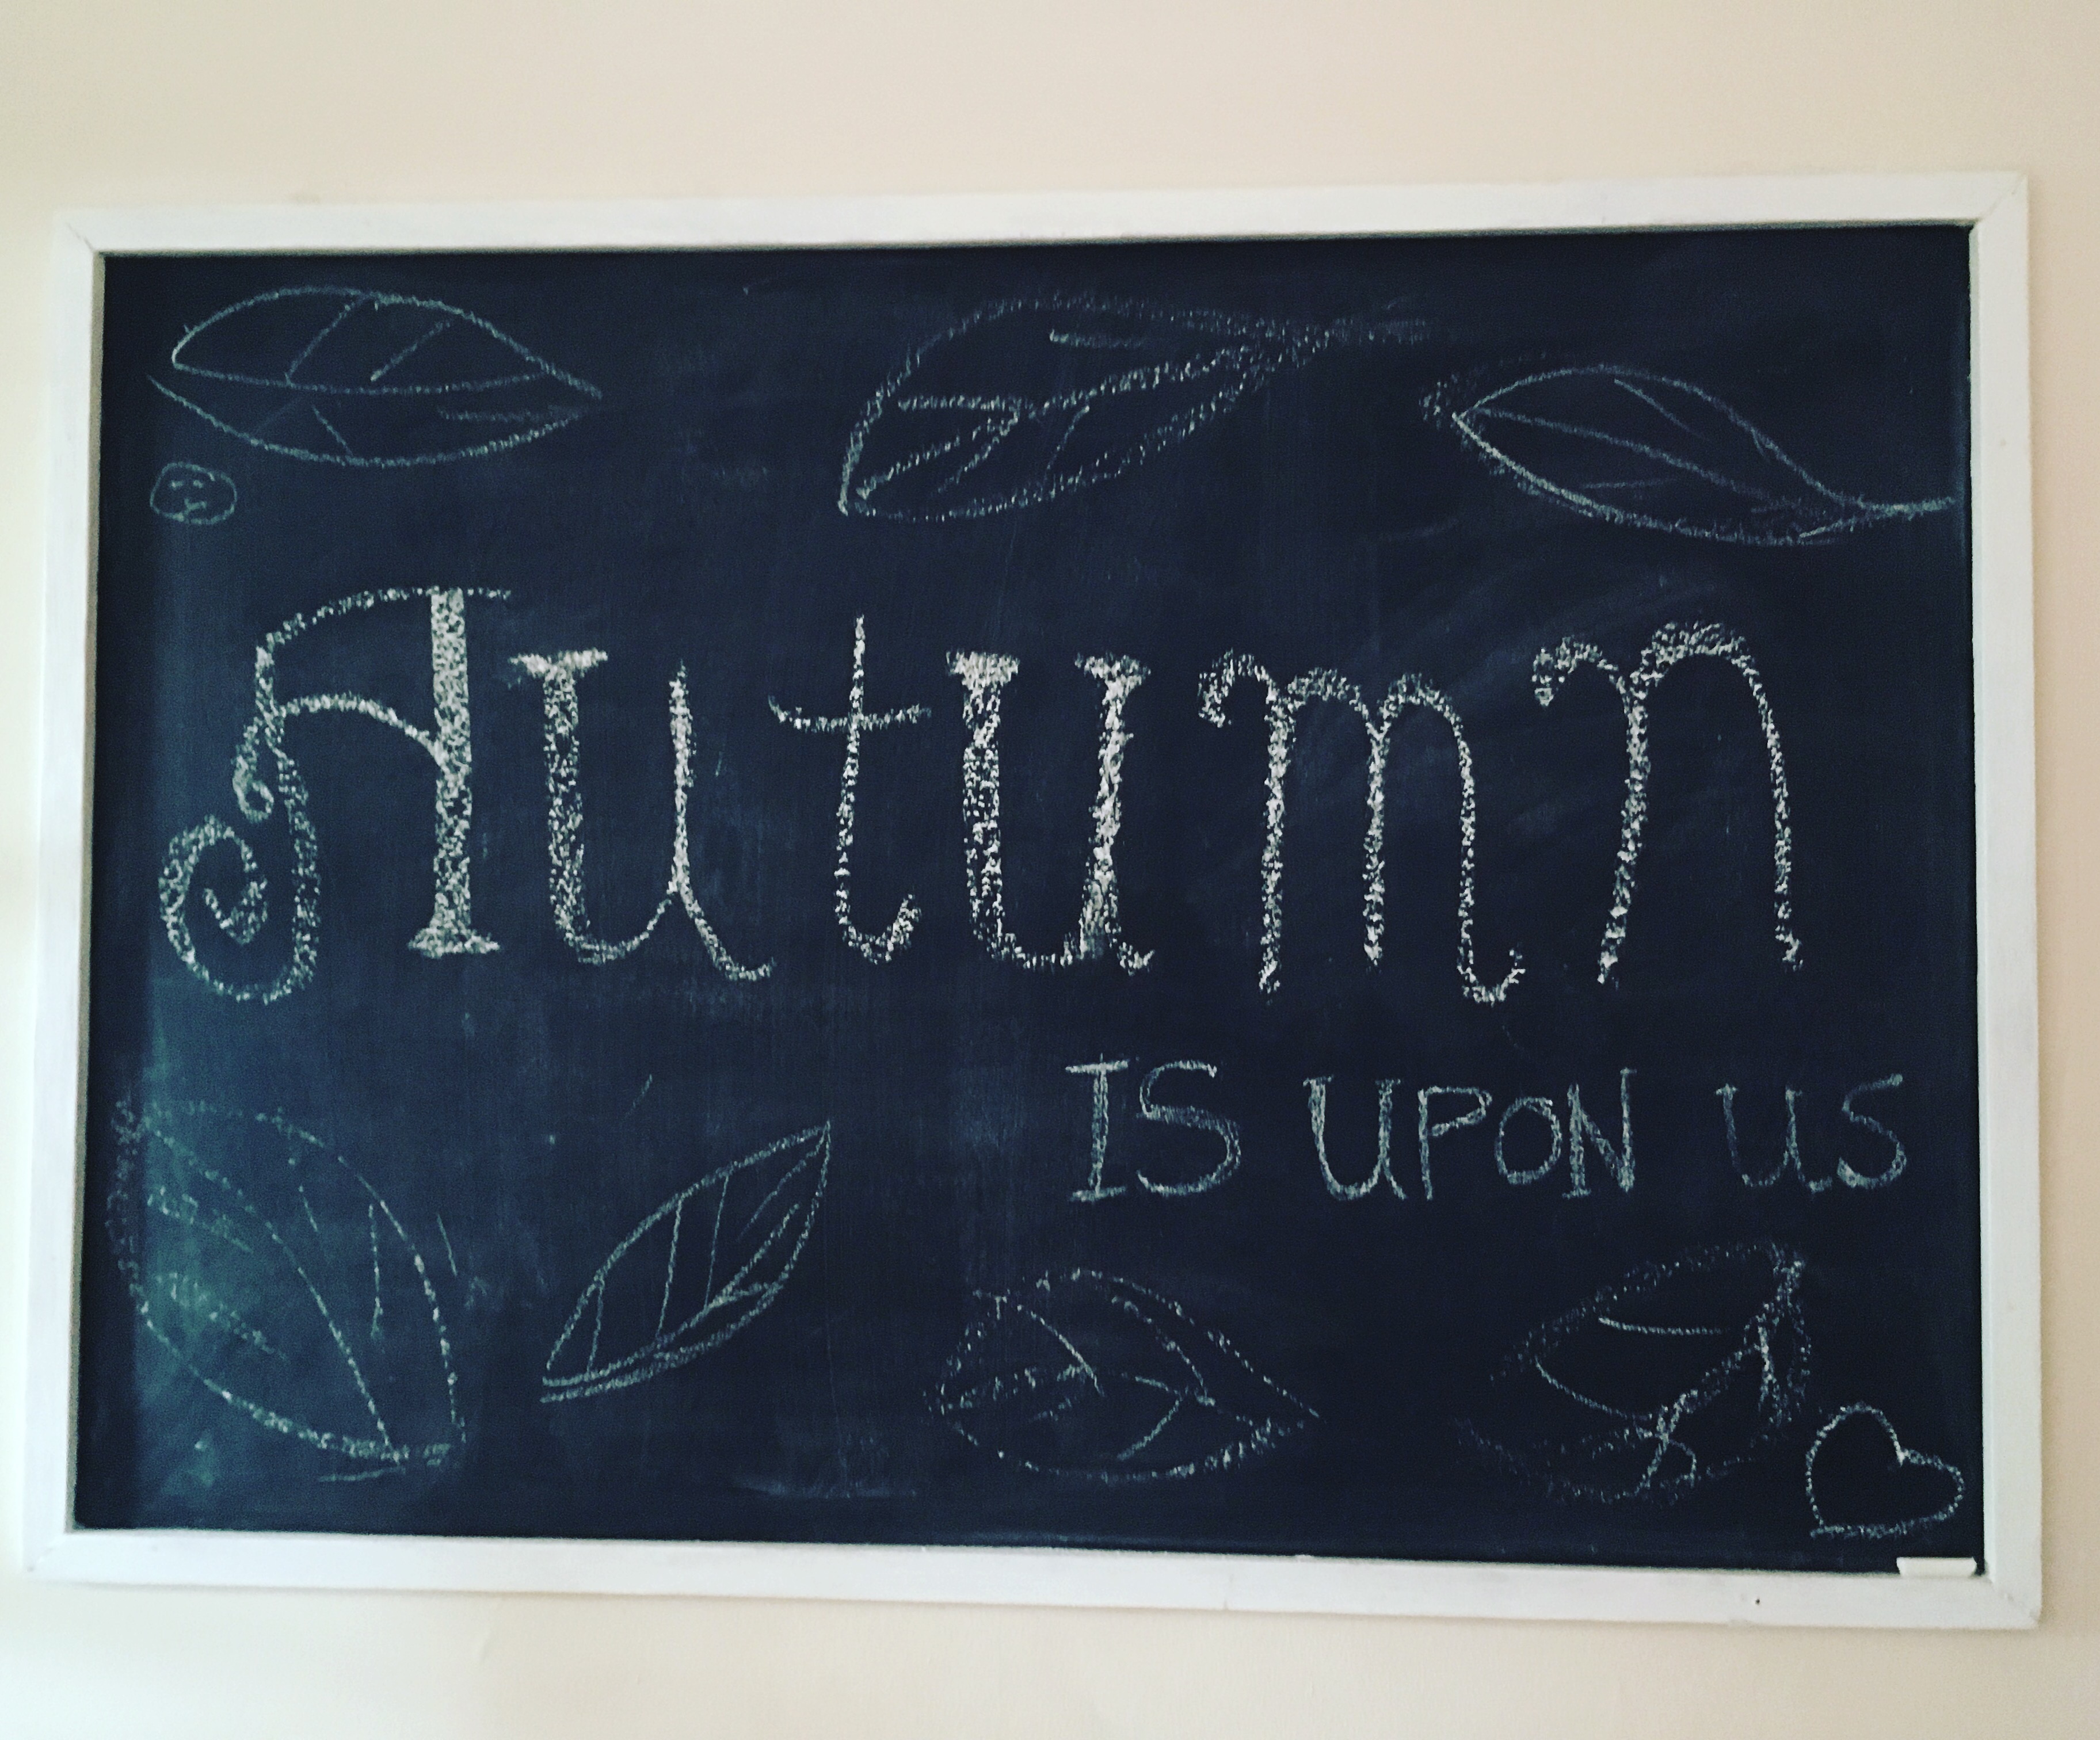 Autumn
IS UPON US